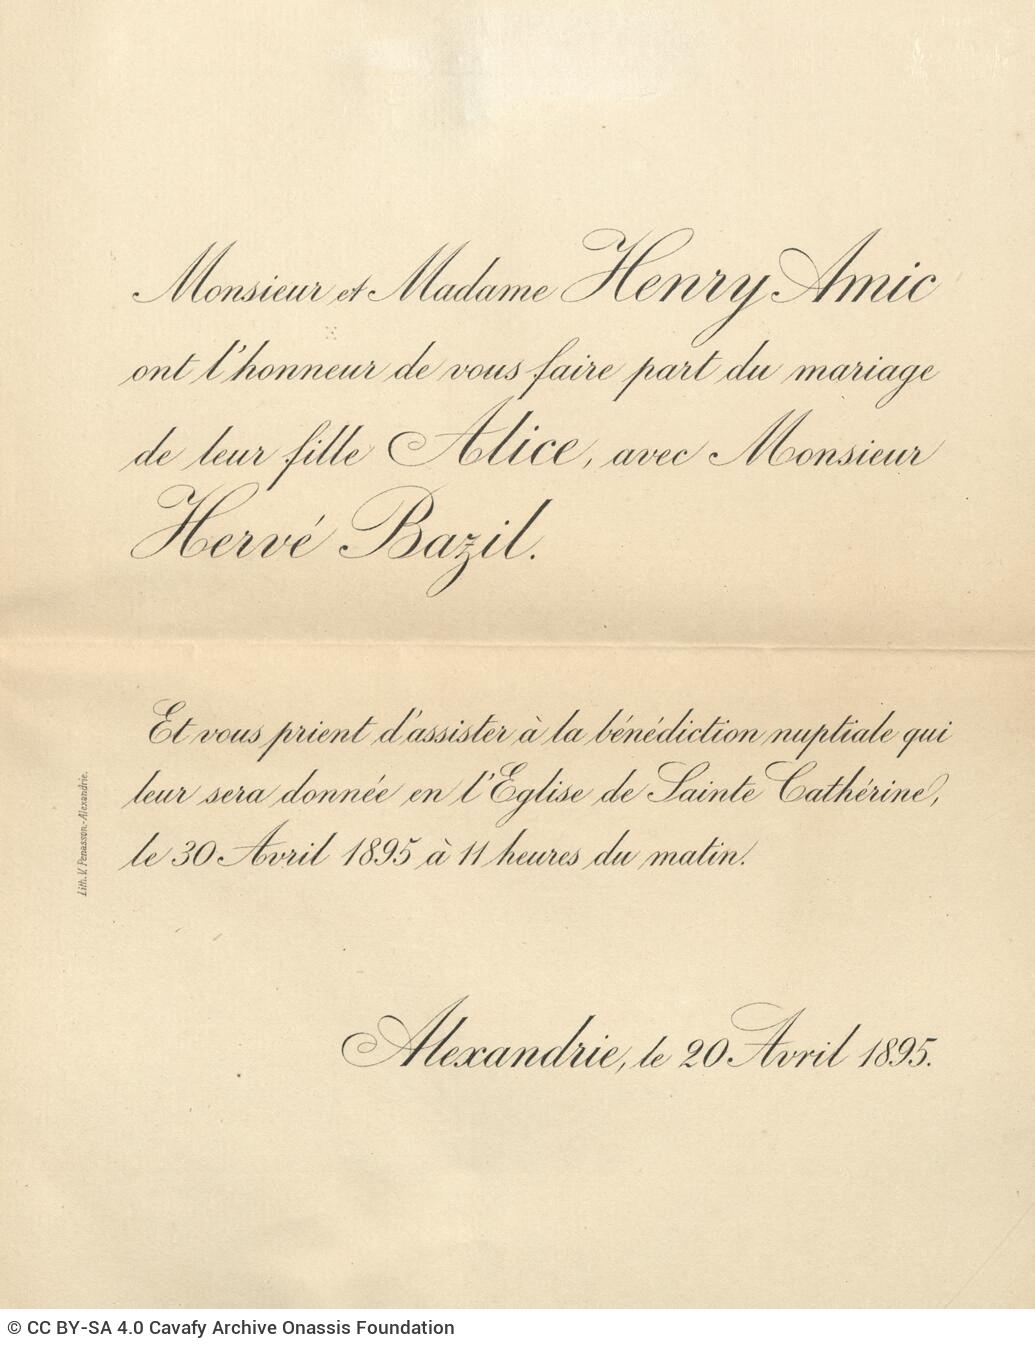 Monsieur et Madame Henry Amic
ont l'honneur de vous faire part du mariage
de leur fille Alice, avec Monsieur
Hervé Bazil.
Et vous prient d'assister à la bénédiction nuptiale qui
leur sera donnée en l'Eglise de Sainte Cathérine,
le 30 Avril 1895 à 11 heures du matin.
Lith. V. Penasson.-Alexandrie.
Alexandrie, le 20 Avril 1895.
© CC BY-SA 4.0 Cavafy Archive Onassis Foundation